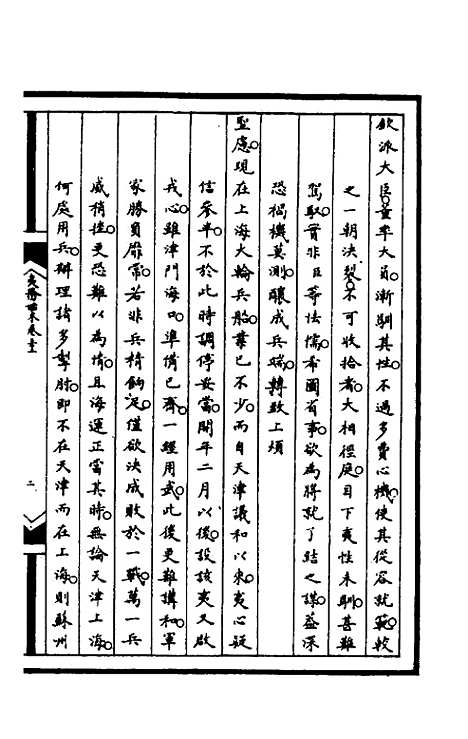 欽派大臣。董率大員。漸馴其性。不過多費心機。使其從容就範。較
之一朝決裂。不可收拾者。大相徑庭。目下夷性未馴。甚難
駕馭。實非臣等怯懦。希圖省事。欲為將就了結之謀。益深
恐禍機莫測。釀成兵端。轉致上煩
聖慮。現在上海大輪兵船。業已不少。而自天津議和以來。夷心疑
信參半。不於此時調停妥當。開年二月以後。設該夷又啟
戎心。雖津門海口。準備已齊。一經用武。此後更難講和。軍
家勝負靡常。若非兵精餉足。僅欲決成敗於一戰。萬一兵
威稍挫。更恐難以為情。且海運正當其時。無論天津上海。
何處用兵。辦理諸多掣肘。即不在天津而在上海。則蘇州
二